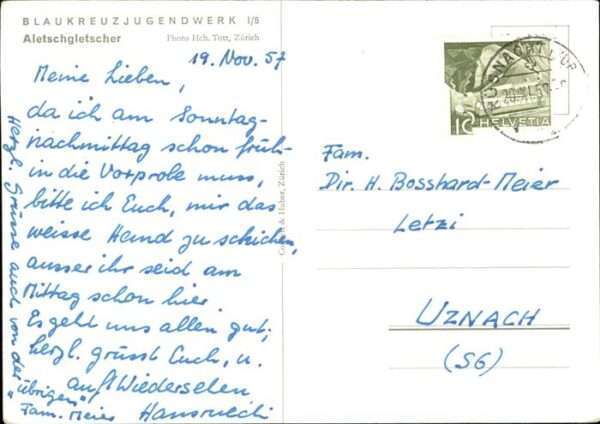 BLAUKREUZJUGENDWERK I/5
Aletschgletscher Photo Hch. Tutt, Zürich
19. Nov. 57
Meine Lieben,
da ich am Sonntag-
nachmittag schon früh
in die Vorprobe muss,
bitte ich Euch, mir das
weisse Hemd zu schicken,
ausser ihr seid am
Mittag schon hier.
Es geht uns allen gut,
herzl. grüsst Euch, u.
auf Wiedersehen
Hansruedi
Herzl. Grüsse auch von der
"übrigen"
Fam. Meier
& Huber, Zürich
HELVETIA
20.XI.57
Fam.
Dir. H. Bosshard-Meier
Letzi
UZNACH
(SG)